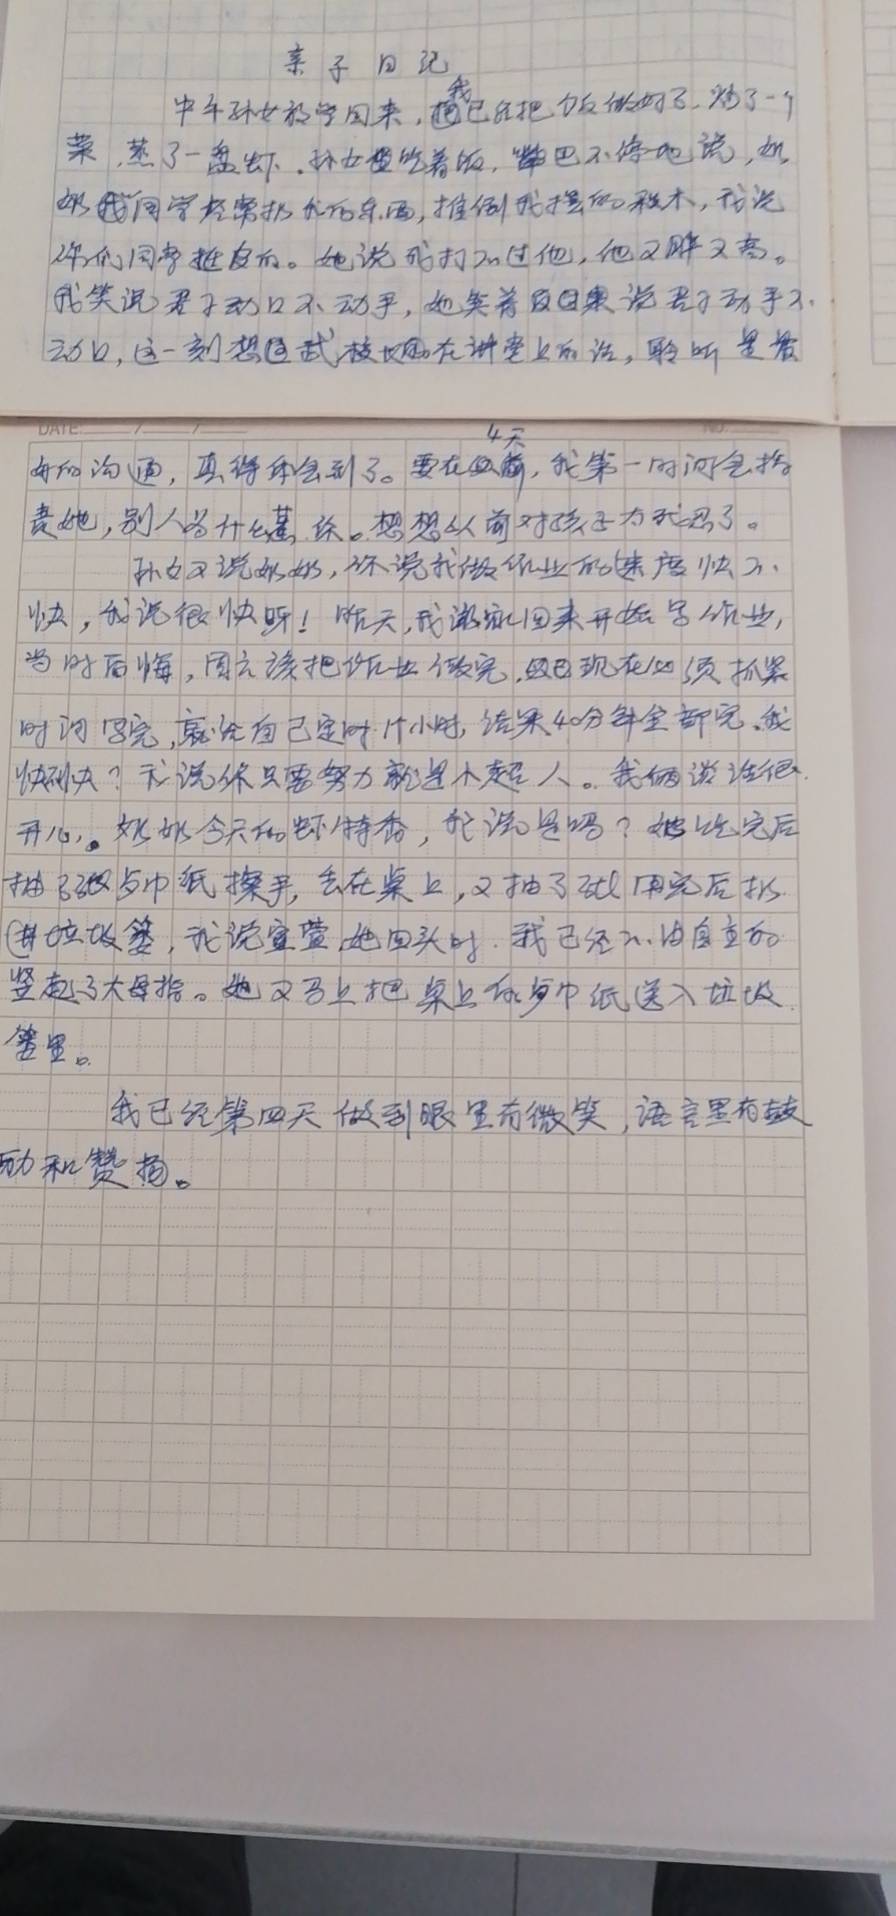 亲子日记
中午孙女放学回来,我已经把饭做好了,炒了一个
菜,蒸了一盘虾。孙女吃着饭,嘴巴不停地说,奶
奶同学经常扔我的东西,推倒我搭的积木,我说
你们同学挺皮的。她说我打不过他,他又胖又高。
我笑说君子动口不动手,她笑着反回来说君子动手不
动口,这一刻想武校长在讲堂上的话,聆听是最
好的沟通,真得体会到了。要在4天前,我第一时间会指
责她,别人为什么惹你。想想以前对孩子
孙女又说奶奶,你说我做作业的速度快不
快,我说很快呀!昨天,我游泳回来开始写作业,
当时后悔,应该把作业做完,现在必须抓紧
时间写完,就给自己定时1个小时,结果40分钟全部完。我
快不快?我说你只要努力就是小超人。我俩谈话很
开心。奶奶今天的虾特香,我说是吗?她吃完后
抽了张与巾纸擦手,丢在桌上,又抽了张用完后扔
进垃圾篓,我说宣萱,她回头时,我已经不由自主的
竖起了大母指。她又马上把桌上的与巾纸送入垃圾
篓里。
我已经第四天做到眼里有微笑,语言里有鼓
励和赞扬。